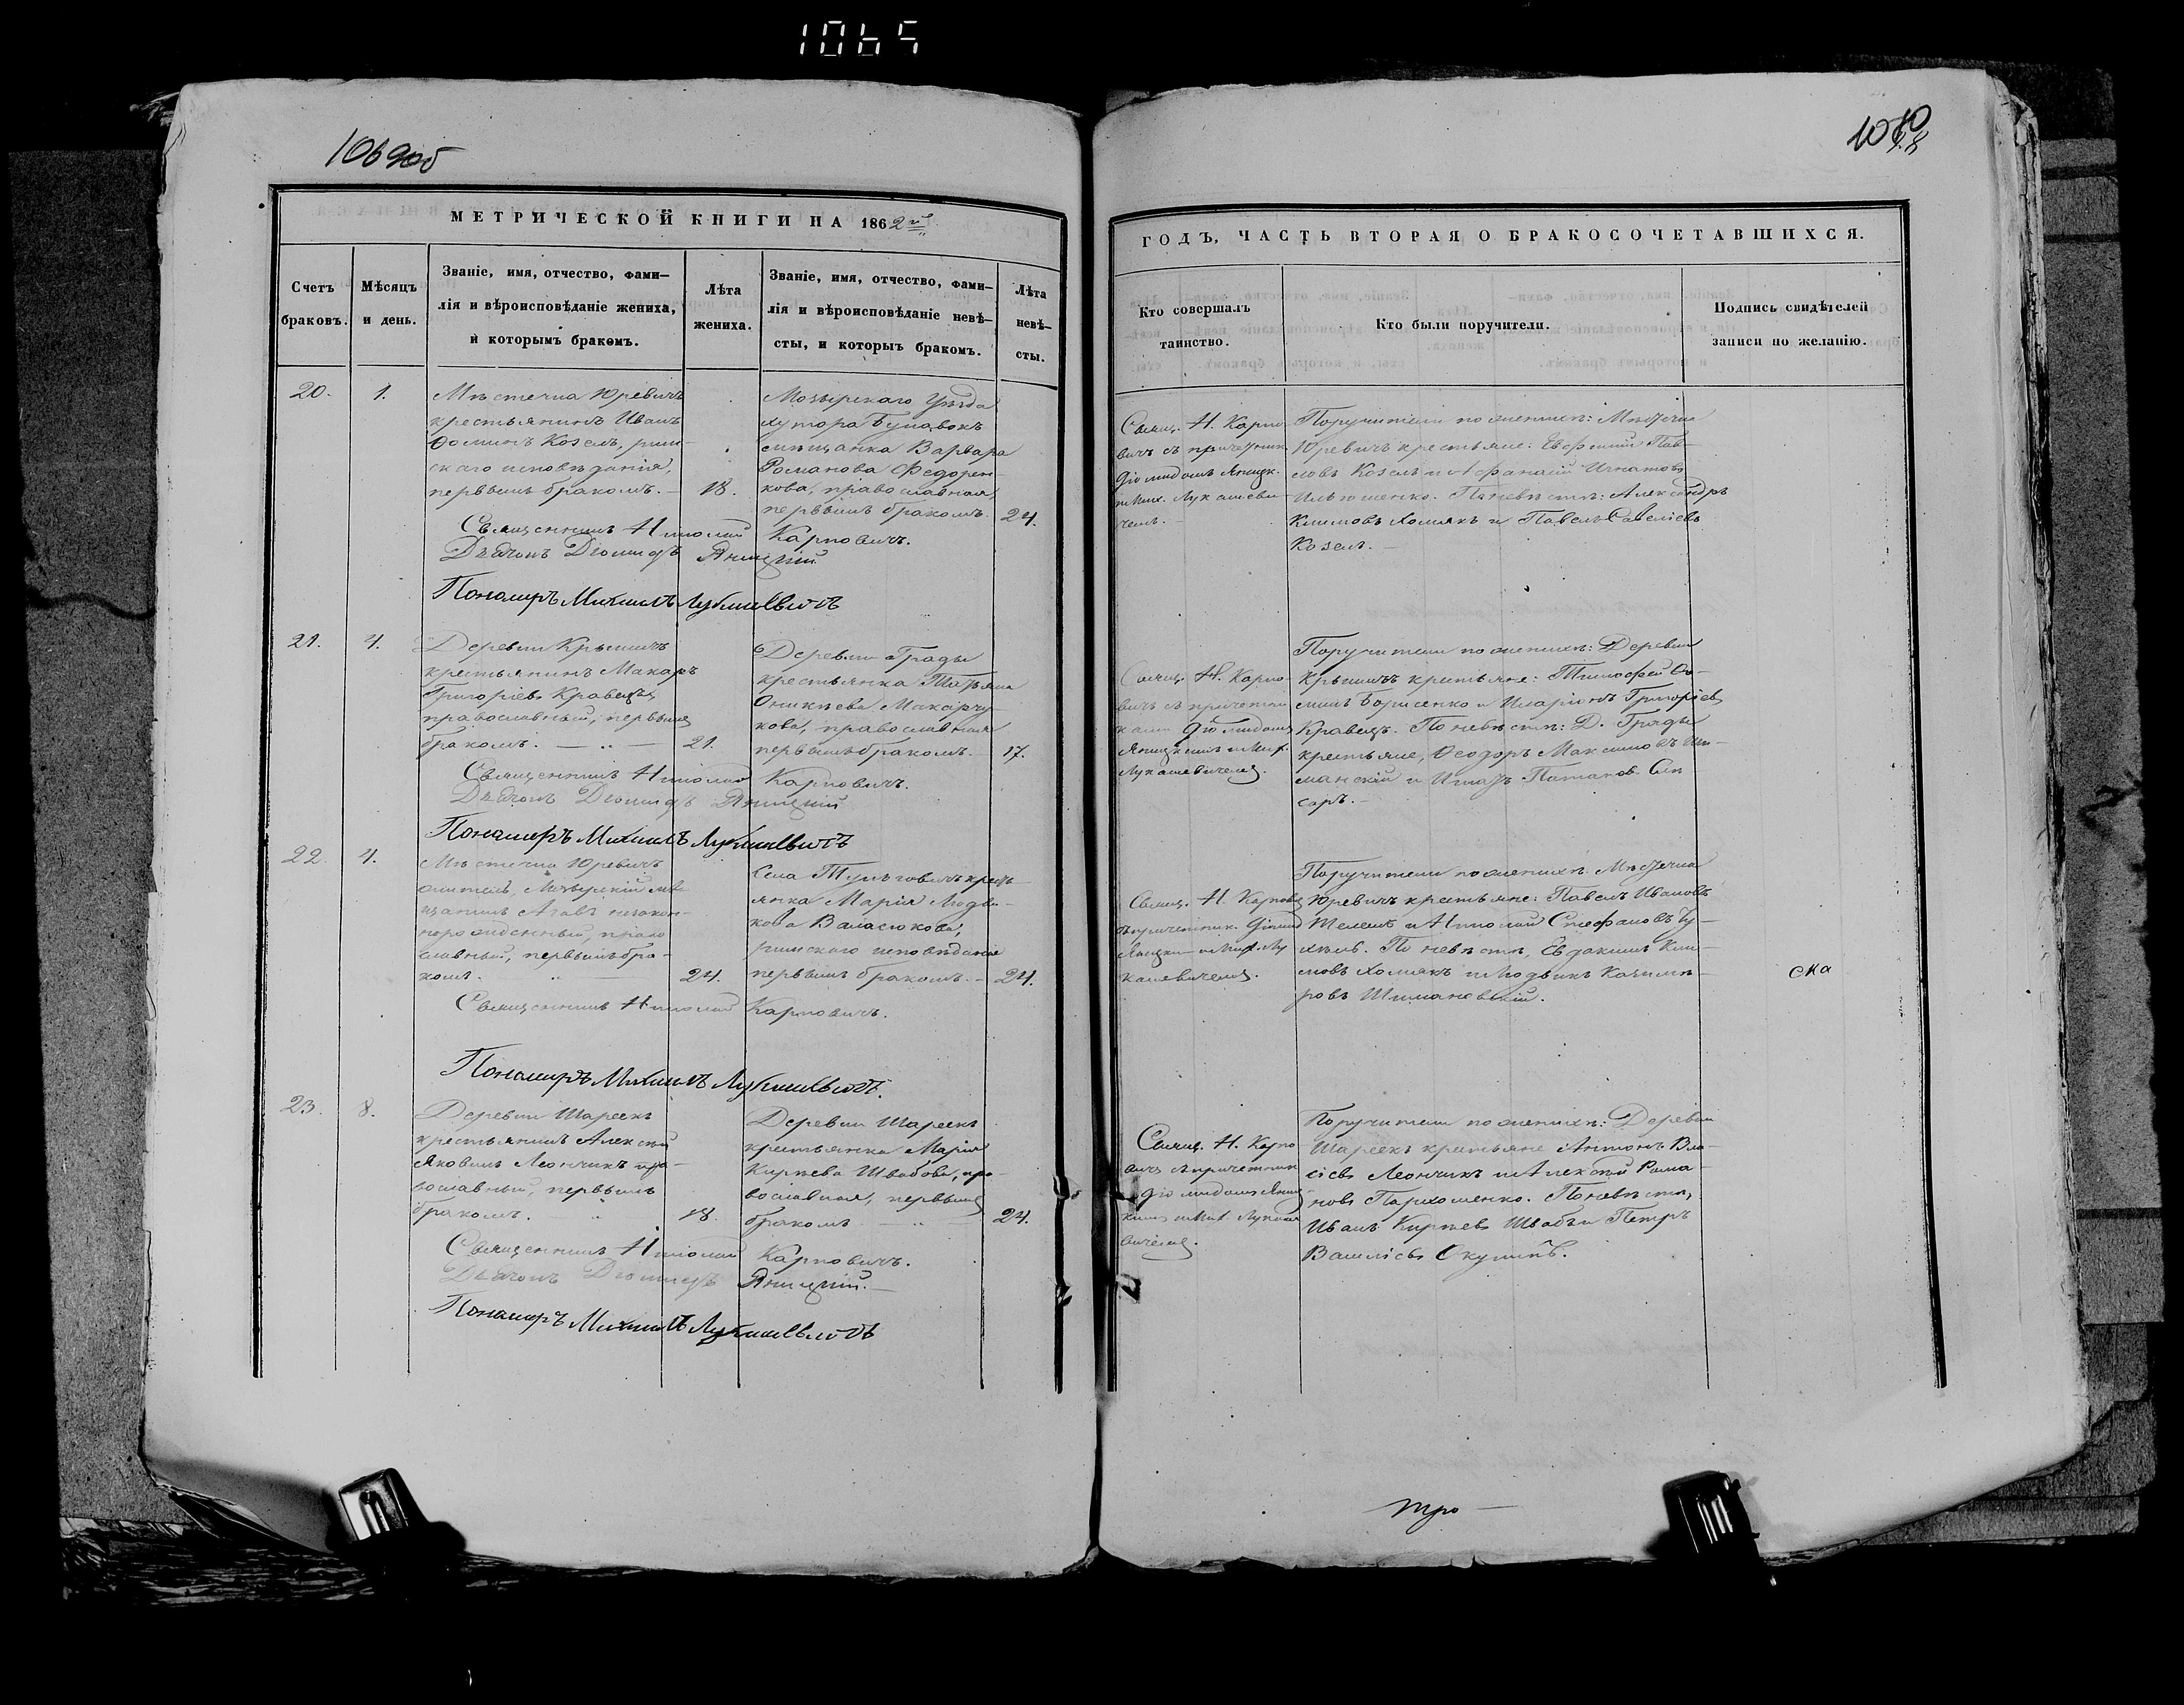 1065
1069об
МЕТРИЧЕСКОЙ КНИГИ НА 1862й
Счетъ
браковъ.
Мѣсяцъ
и день.
Званіе, имя, отчество, фами–
лія и вѣроисповѣданіе жениха,
и которымъ бракомъ.
Лѣта
жениха.
Званіе, имя, отчество, фами–
лія и вѣроисповѣданіе невѣ–
сты, и которыъ бракомъ.
Лѣта
невѣ–
сты.
20. 1.
Мѣстечка Юревичъ
крестьянинъ Иванъ
Ѳоминъ Козелъ, рим-
скаго исповѣданія,
первымъ бракомъ. — 18.
Мозырскаго Уѣзда
хутора Булавокъ
мѣщанка Варвара
Романова Федорен
кова, православная
первымъ бракомъ. 24.
Священникъ Николай Карповичъ.
Дьячокъ Діомидъ Яницкій
Пономаръ Михаилъ Лукашевичъ
21. 4.
Деревни Крышичъ
крестьянинъ Макаръ
Григоріевъ Кравецъ,
православный, первымъ
бракомъ. — 21.
Деревни Грады
крестьянка Татьяна
Оникѣева Макарчу
кова, православная
первымъ бракомъ. 17.
Священникъ Николай Карповичъ.
Дьячокъ Діомидъ Яницкій
Пономаръ Михаилъ Лукашевичъ
22. 4.
Мѣстечка Юревичъ
житель, Мозырскій мѣ
щанинъ незакон-
норожденный, право
славный, первымъ бра-
комъ. 24.
Села Тульговичъ кресть
янка Марія Людви-
кова Валасюкова,
римскаго исповѣданія
первымъ бракомъ. — 24.
Священникъ Николай Карповичъ.
Пономаръ Михаилъ Лукашевичъ.
23. 8.
Деревни Шареекъ
крестьянинъ Алексѣй
Яковинъ Леончикъ пра-
вославный, первымъ
бракомъ. 18.
Деревни Шареекъ
крестьянка Марія
Кирѣева Швабова, пра-
вославная, первымъ
бракомъ 24.
Священникъ Николай Карповичъ.
Дьячокъ Діомидъ Яницкій. —
Пономаръ Михаилъ Лукашевичъ
ГОДЪ, ЧАСТЬ ВТОРАЯ О БРАКОСОЧЕТАВШИХСЯ.
Кто совершалъ
таинство.
Кто были поручители.
Подпись свидѣтелей
записи по желанію.
Свящ. Н. Карпо
вичъ съ причетник.
Діомидомъ Яницк.
и Мих. Лукашеви
чемъ.
Поручители по женихѣ: Мѣстечка
Юревичъ крестьяне: Евфимій Пав-
ловъ Козелъ и Афанасій Игнатовъ
Ильюшенко. По невѣстѣ: Александръ
Климовъ Хомякъ и Павелъ Савеліевъ
Козелъ. —
Свящ. Н. Карпо-
вичъ съ причетни
ками Діомидомъ
Яницкимъ и Мих.
Лукашевичемъ.
Поручители по женихѣ: Деревни
Крышичъ крестьяне: Тимофей Ѳо-
минъ Борисенко и Иларіонъ Григоріевъ
Кравецъ. По невѣстѣ: Д. Грады
крестьяне, Ѳеодоръ Максимовъ
и Игнатъ
саръ. —
Свящ. Н. Карпов
съ причетник. Діомид
Яницким и Мих. Лу
кашевичемъ.
Поручители по женихѣ: Мѣстечка
Юревичъ крестьяне: Павелъ Ивановъ
и Николай Стефановъ
По невѣстѣ, Евдокимъ Кли-
мовъ Хомякъ и Людвикъ Казимѣ-
ровъ Шимановскій.
ска
Свящ. Н. Карпо
вичъ съ причетник
Діомидомъ Яниц-
кимъ и Мих. Лукаш
евичемъ.
Поручители по женихѣ: Деревни
Шареекъ крестьяне Антонъ Вла-
сіевъ Леончикъ и Алексѣй Рома-
новъ Пархоменко. По невѣстѣ,
Иванъ Кирѣевъ Швабъ и Петръ
Василіевъ
тро —